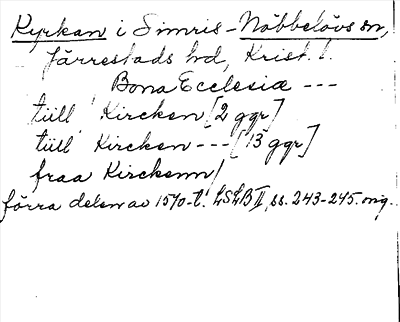 Kyrkan i Simris-Nöbbelövs sn,
Järrestads hd, Krist. l.
Bona Ecclesiæ ---
tiill Kircken [2 ggr]
tiill Kircken --- [13 ggr]
fraa Kirckenn/
förra delen av 1570-t. LSLB II, ss. 243-245. orig.